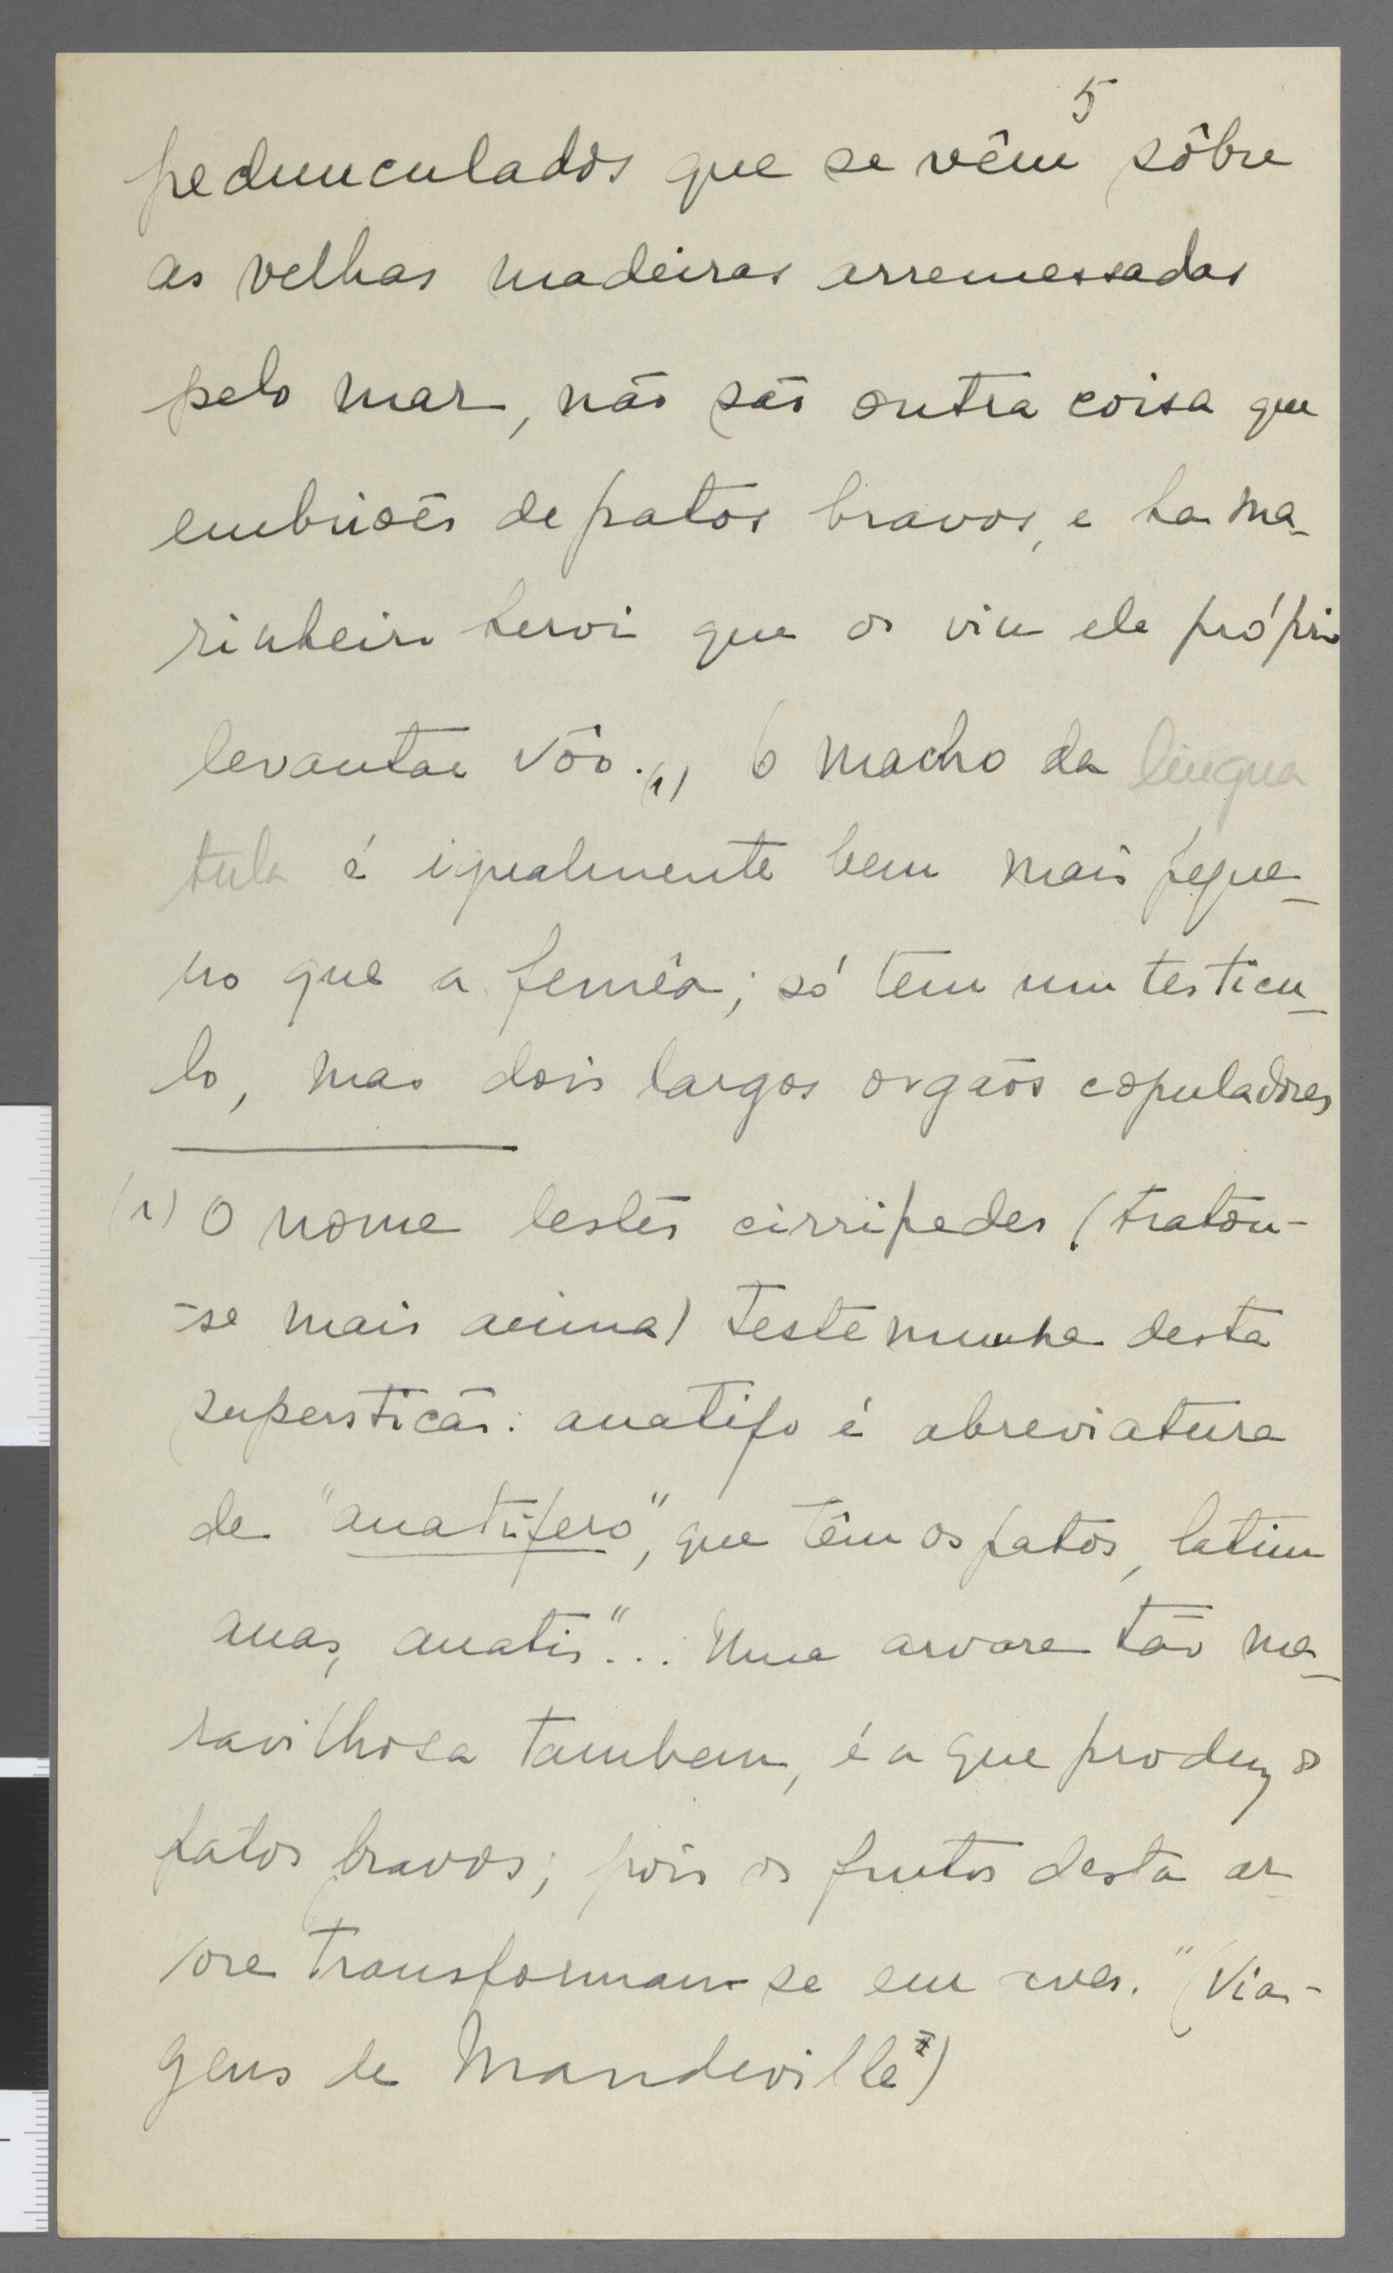 5
pedunculados que se vêm sôbre
as velhas madeiras arremessadas
pelo mar, não são outra coisa que
embriões de patos bravos, e ha ma-
rinheiro heroi que os viu ele próprio
levantar vôo.(1) O macho da lingua
tula é igualmente bem mais peque-
no que a femêa; só tem um testicu-
lo, mas dois largos orgãos copuladores
(1) O nome destes cirripedes (tratou-
-se mais acima) testemunha desta
superstição: anatifo é abreviatura
de "anatífero", que têm os patos, latim
anas, anatis"... Uma arvore tão ma-
ravilhosa tambem, é a que produz os
patos bravos; pois os frutos desta ar-
vore transformam-se em aves." (Via-
gens de Mandeville)